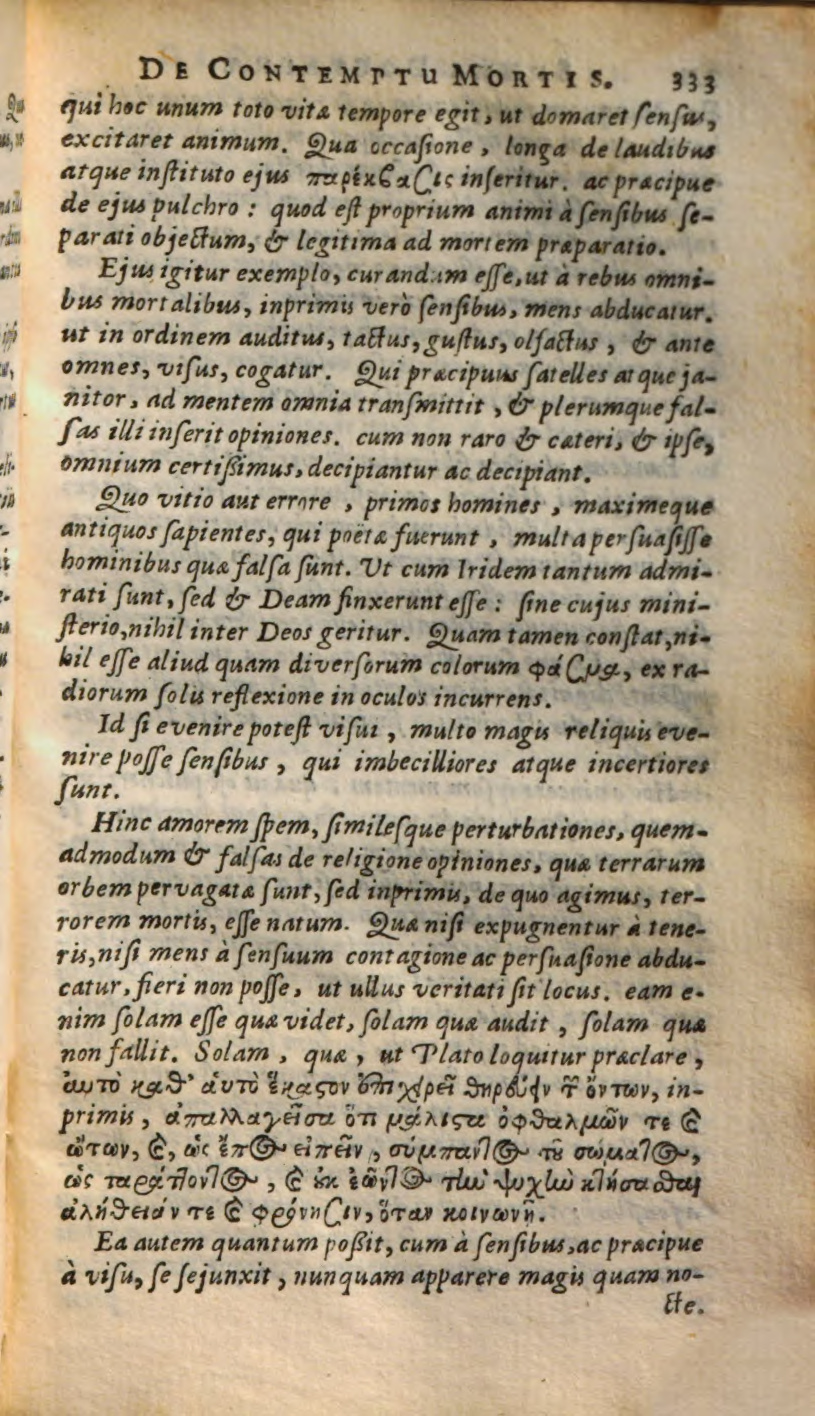 DE CONTEMPTU MORTIS. 333
qui hoc unum toto vitæ tempore egit, ut domaret ſenſus,
excitaret animum. Qua occaſione, longa de laudibus
atque inſtituto ejus παρέκβασις inſeritur. ac præcipue
de ejus pulchro: quod eſt proprium animi à ſenſibus ſe-
parati objectum, & legitima ad mortem præparatio.
Ejus igitur exemplo, curandum eſſe, ut à rebus omni-
bus mortalibus, inprimis verò ſenſibus, mens abducatur.
ut in ordinem auditus, tactus, guſtus, olfactus, & ante
omnes, viſus, cogatur. Qui præcipuus ſatelles atque ja-
nitor, ad mentem omnia tranſmittit, & plerumque fal-
ſas illi inſerit opiniones. cum non raro & cæteri, & ipſe,
omnium certißimus, decipiantur ac decipiant.
Quo vitio aut errore, primos homines, maximeque
antiquos ſapientes, qui poëtæ fuerunt, multa perſuaſiſſe
hominibus quæ falſa ſunt. Ut cum Iridem tantum admi-
rati ſunt, ſed & Deam finxerunt eſſe: ſine cujus mini-
ſterio, nihil inter Deos geritur. Quam tamen conſtat, ni-
hil eſſe aliud quam diverſorum colorum φάσμα, ex ra-
diorum ſolis reflexione in oculos incurrens.
Id ſi evenire poteſt viſui, multo magis reliquis eve-
nire poſſe ſenſibus, qui imbecilliores atque incertiores
ſunt.
Hinc amorem ſpem, ſimileſque perturbationes, quem-
admodum & falſas de religione opiniones, quæ terrarum
orbem pervagatæ ſunt, ſed inprimis, de quo agimus, ter-
rorem mortis, eſſe natum. Quæ niſi expugnentur à tene-
ris, niſi mens à ſenſuum contagione ac perſuaſione abdu-
catur, fieri non poſſe, ut ullus veritati ſit locus. eam e-
nim ſolam eſſe quæ videt, ſolam quæ audit, ſolam quæ
non fallit. Solam, quæ, ut Plato loquitur præclare,
αυτὸ καθ' αὑτὸ ἕκαστον ἐπιχειρεῖ θηρεύειν τῶν ὄντων, in-
primis, ἀπαλλαγεῖσα ὅτι μάλιστα ὀφθαλμῶν τε καὶ
ὤτων, καὶ, ὡς ἔπος εἰπεῖν, σύμπαντος τοῦ σώματος,
ὡς ταράττοντος, καὶ οὐκ ἐῶντος τὴν ψυχὴν κτήσασθαι
ἀλήθειάν τε καὶ φρόνησιν, ὅταν κοινωνῇ.
Ea autem quantum poßit, cum à ſenſibus, ac præcipue
à viſu, ſe ſejunxit, nunquam apparere magis quam no-
cte.